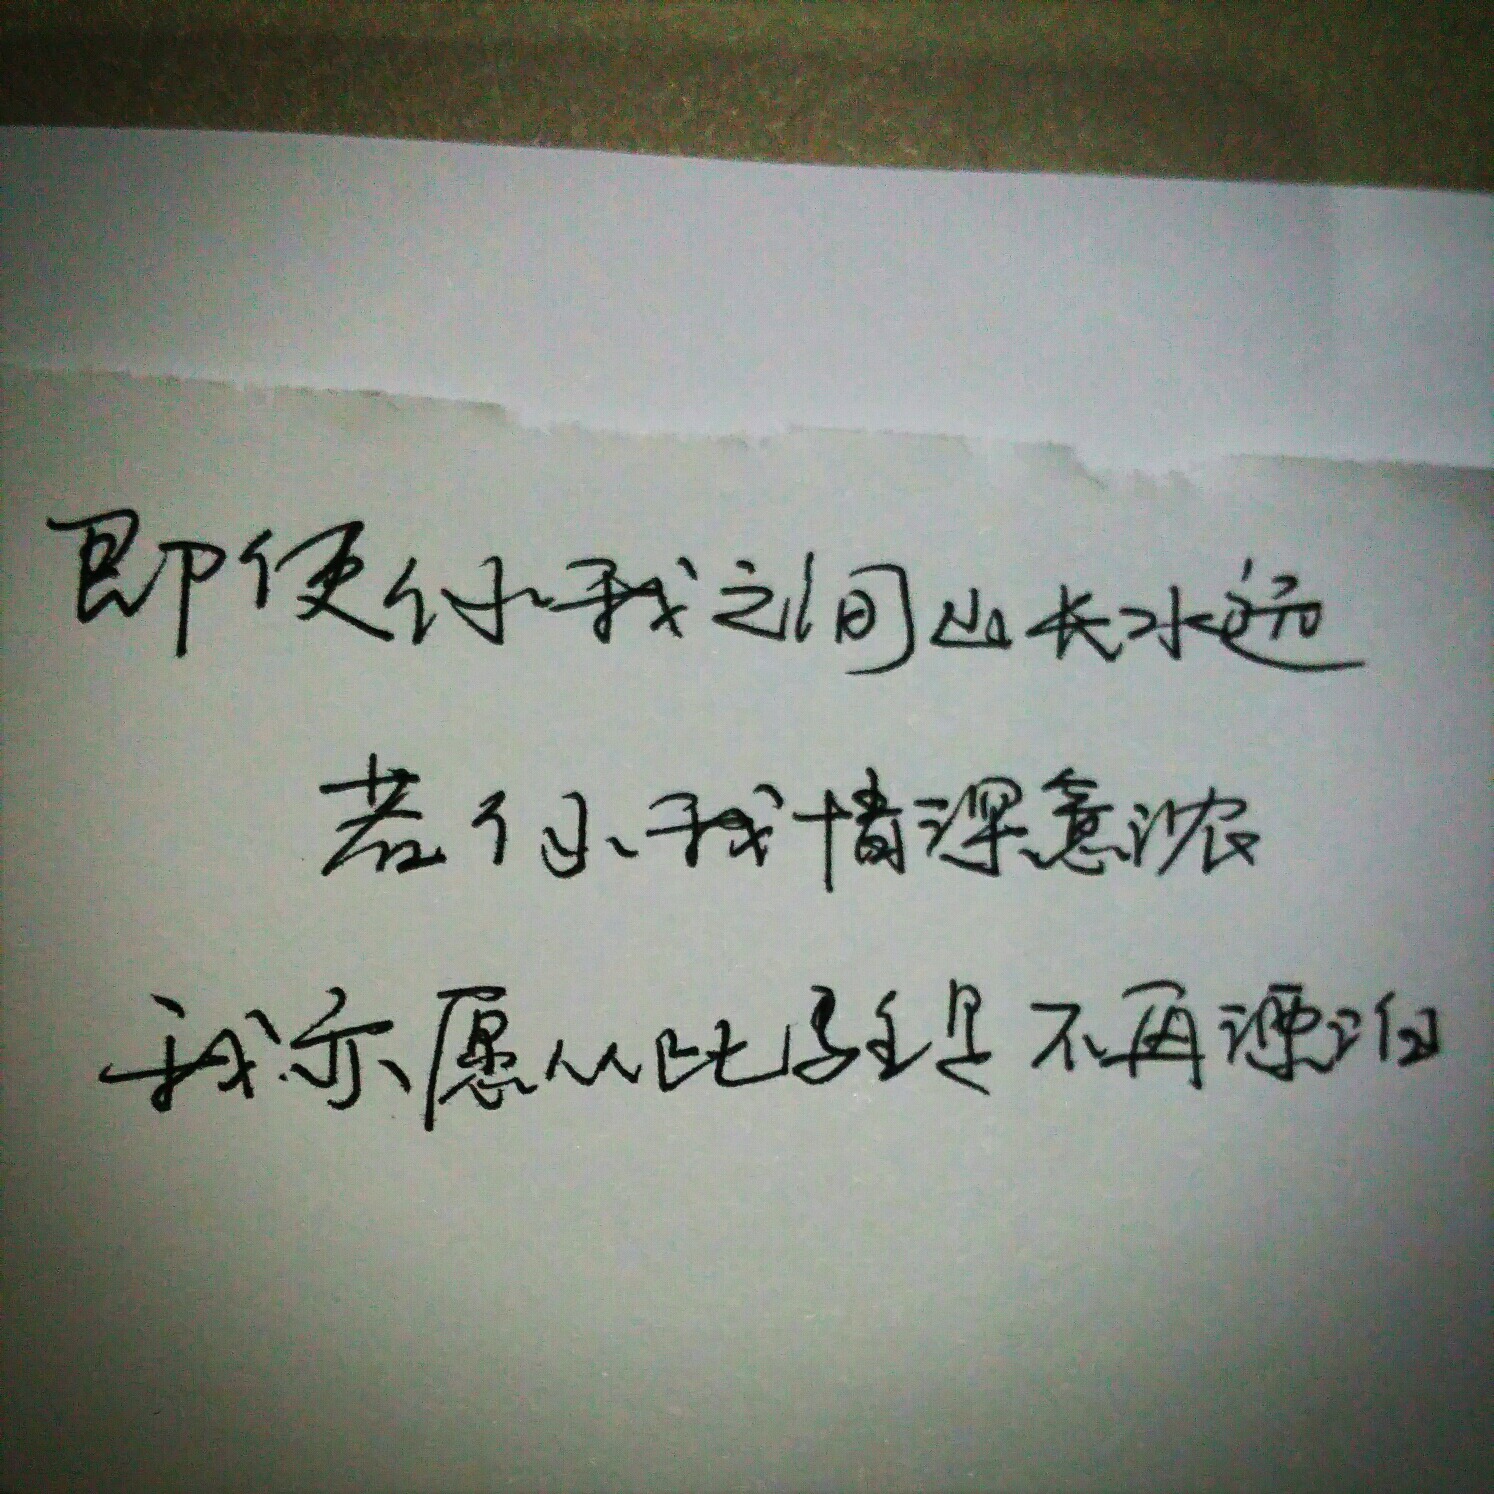 即使你我之间山长水远
若你我情深意浓
我亦愿从此驻足不再漂泊